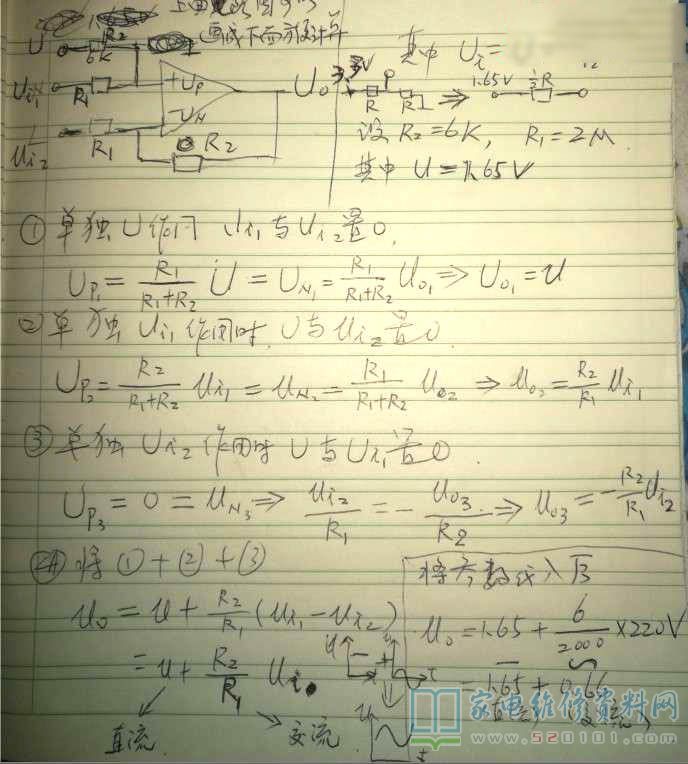 画成下面方便计算
其中 Ui=
U R2 6K
Ui1 R1 +UP U0
UN
Ui2 R1 R2
3.3V P R R ⇒ 1.65V ½R
设 R2=6K, R1=2M
其中 U=1.65V
① 单独U作用 Ui1与Ui2置0.
UP1 = R1/(R1+R2) U = UN1 = R1/(R1+R2) U01 ⇒ U01 = U
② 单独Ui1作用时 U与Ui2置0.
UP2 = R2/(R1+R2) Ui1 = UN2 = R1/(R1+R2) U02 ⇒ U02 = R2/R1 Ui1
③ 单独Ui2作用时 U与Ui1置0.
UP3 = 0 = UN3 ⇒ Ui2/R1 = - U03/R2 ⇒ U03 = - R2/R1 Ui2
④ 将 ①+②+③
U0 = U + R2/R1 (Ui1-Ui2)
= U + R2/R1 Ui
直流 交流
将参数代入后
U0 = 1.65 + 6/2000 ×220V
= 1.65 + 0.66
直流 (交流)
U t
家电维修资料网
www.520101.com